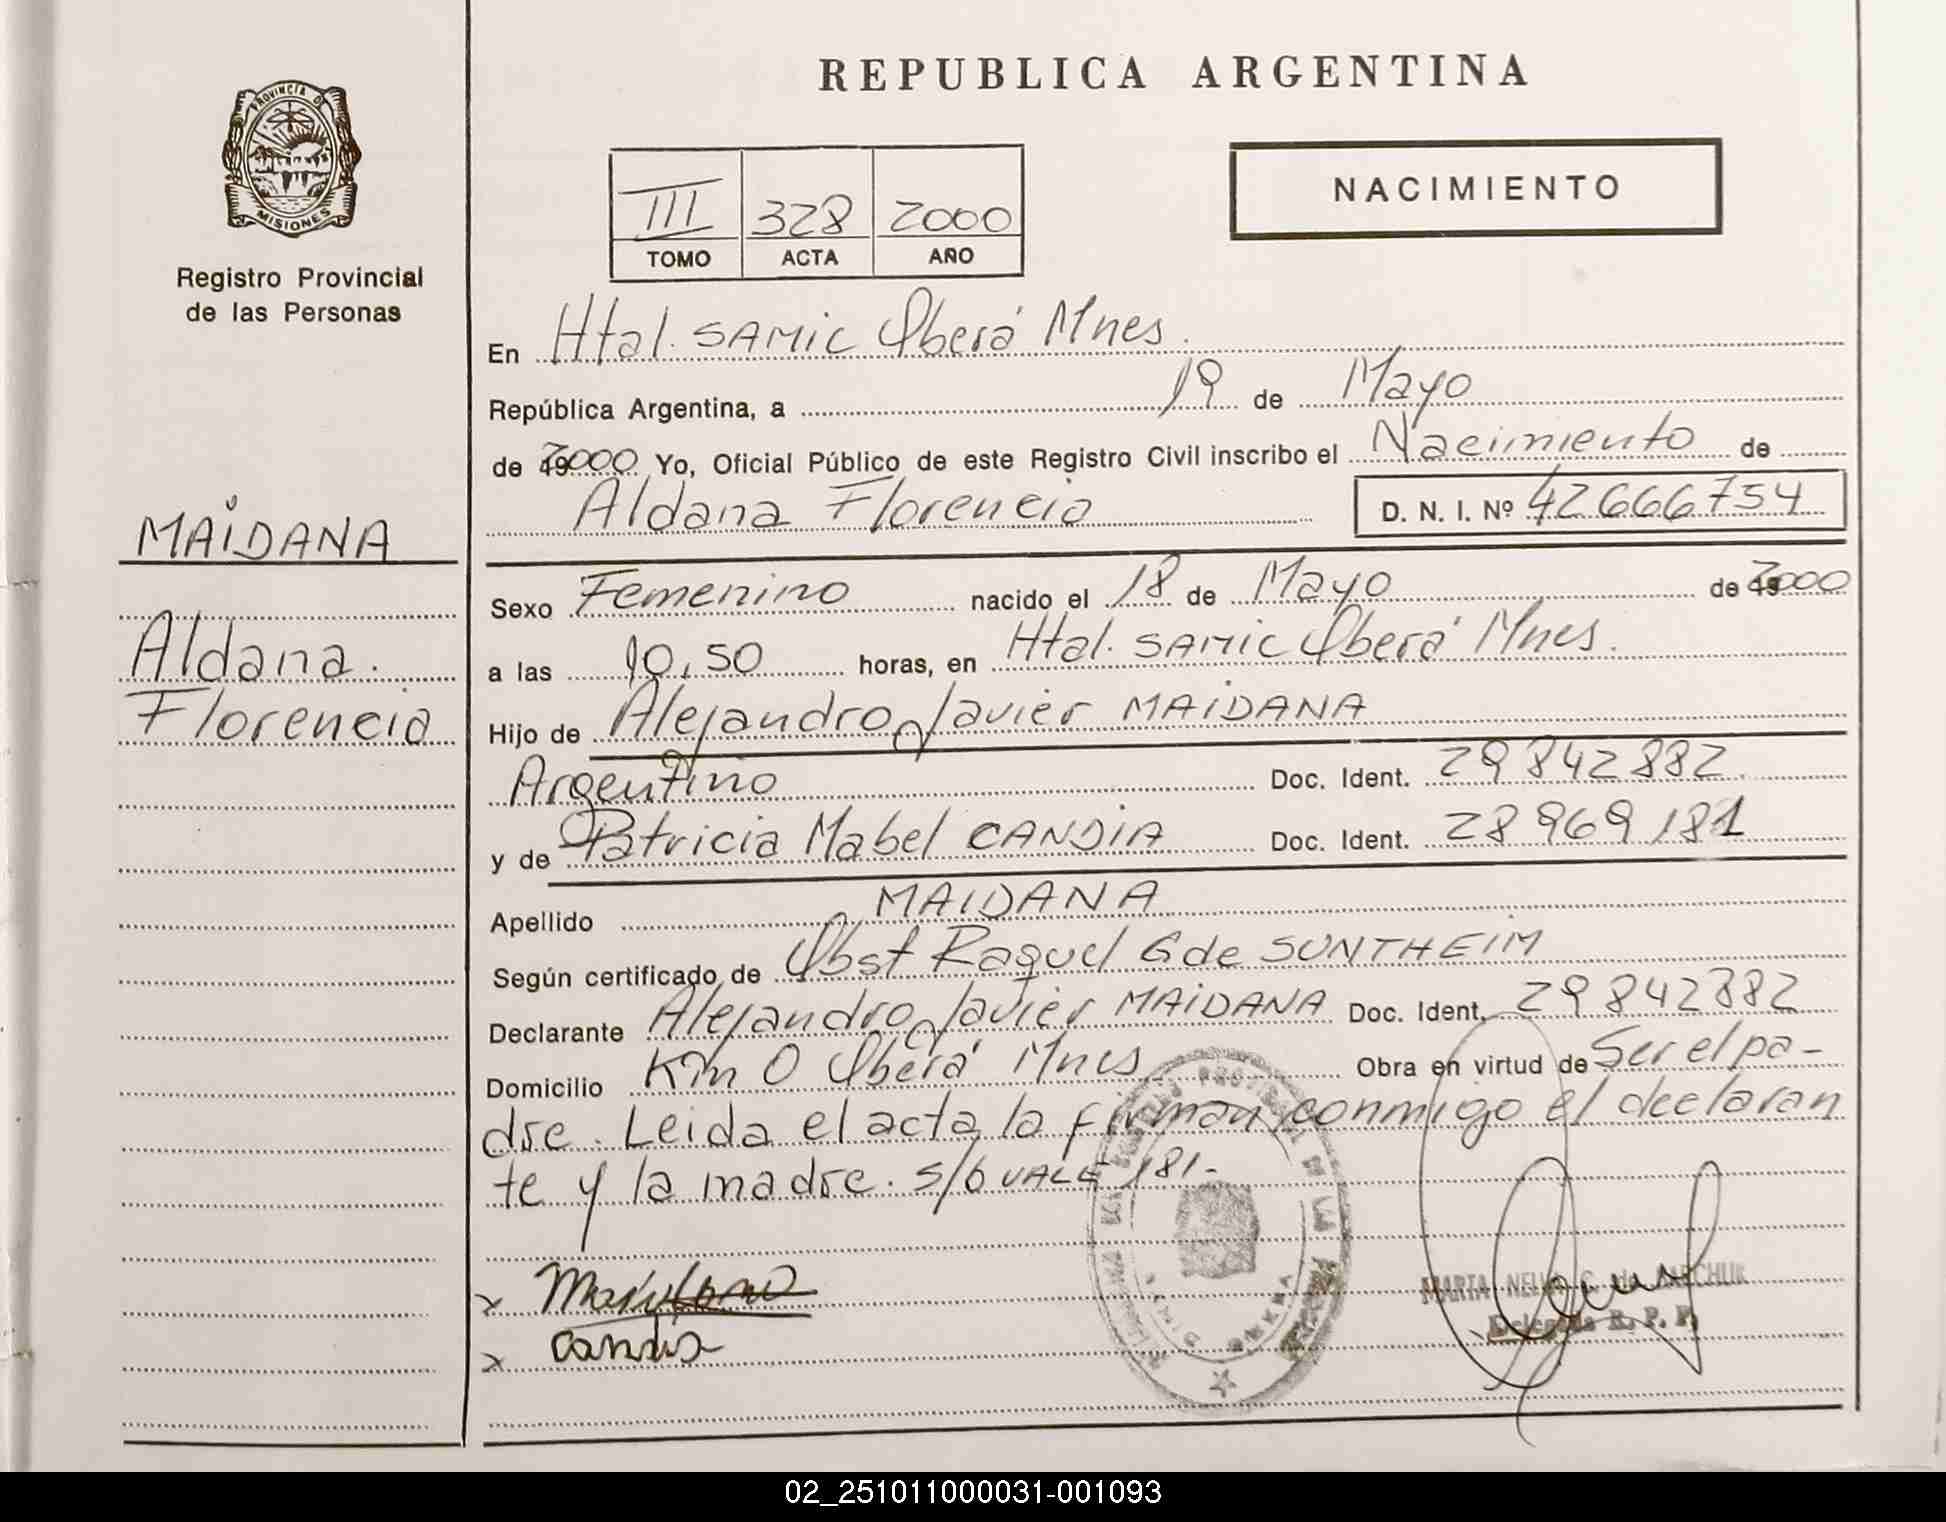 PROVINCIA DE
MISIONES
Registro Provincial
de las Personas
MAIDANA
Aldana.
Florencia
REPUBLICA ARGENTINA
III 328 2000
TOMO ACTA AÑO
NACIMIENTO
En Htal. SAMIC Oberá Mnes.
República Argentina, a 19 de Mayo
de 2000 Yo, Oficial Público de este Registro Civil inscribo el Nacimiento de
Aldana Florencia D. N. I. Nº 42666754
Sexo Femenino nacido el 18 de Mayo de 2000
a las 10,50 horas, en Htal. SAMIC Oberá Mnes.
Hijo de Alejandro Javier MAIDANA
Argentino Doc. Ident. 29842882
y de Patricia Mabel CANDIA Doc. Ident. 28969181
Apellido MAIDANA
Según certificado de Obst Raquel G de SONTHEIM
Declarante Alejandro Javier MAIDANA Doc. Ident. 29842882
Domicilio Km 0 Oberá Mnes Obra en virtud de Ser el pa-
dre. Leida el acta la firman conmigo el declaran
te y la madre. s/b VALE 181.-
x
x Candia
MARTA C. de
Delegada R. P. P.
02_251011000031-001093